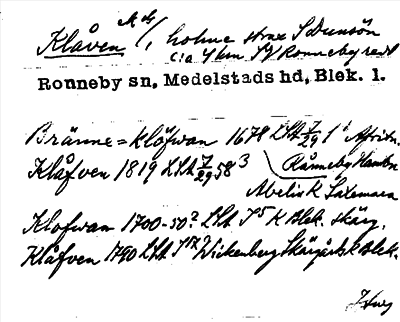 Klåven /, holme strax S Dunsön
c:a 4 km SV Ronneby redd
Ronneby sn, Medelstads hd, Blek. l.
Bränne=Klåfwan 1678 LSA 7/29 1¹ Afritn.
Klåfven 1819 LSA 7/29 58³ Rånneby Hambn
Abelis K Saxemara
Klofwan 1700-50? LSA S⁵ K Blek. skärg.
Klåfven 1790 LSA S¹² Wickenberg Skärgårds K Blek.